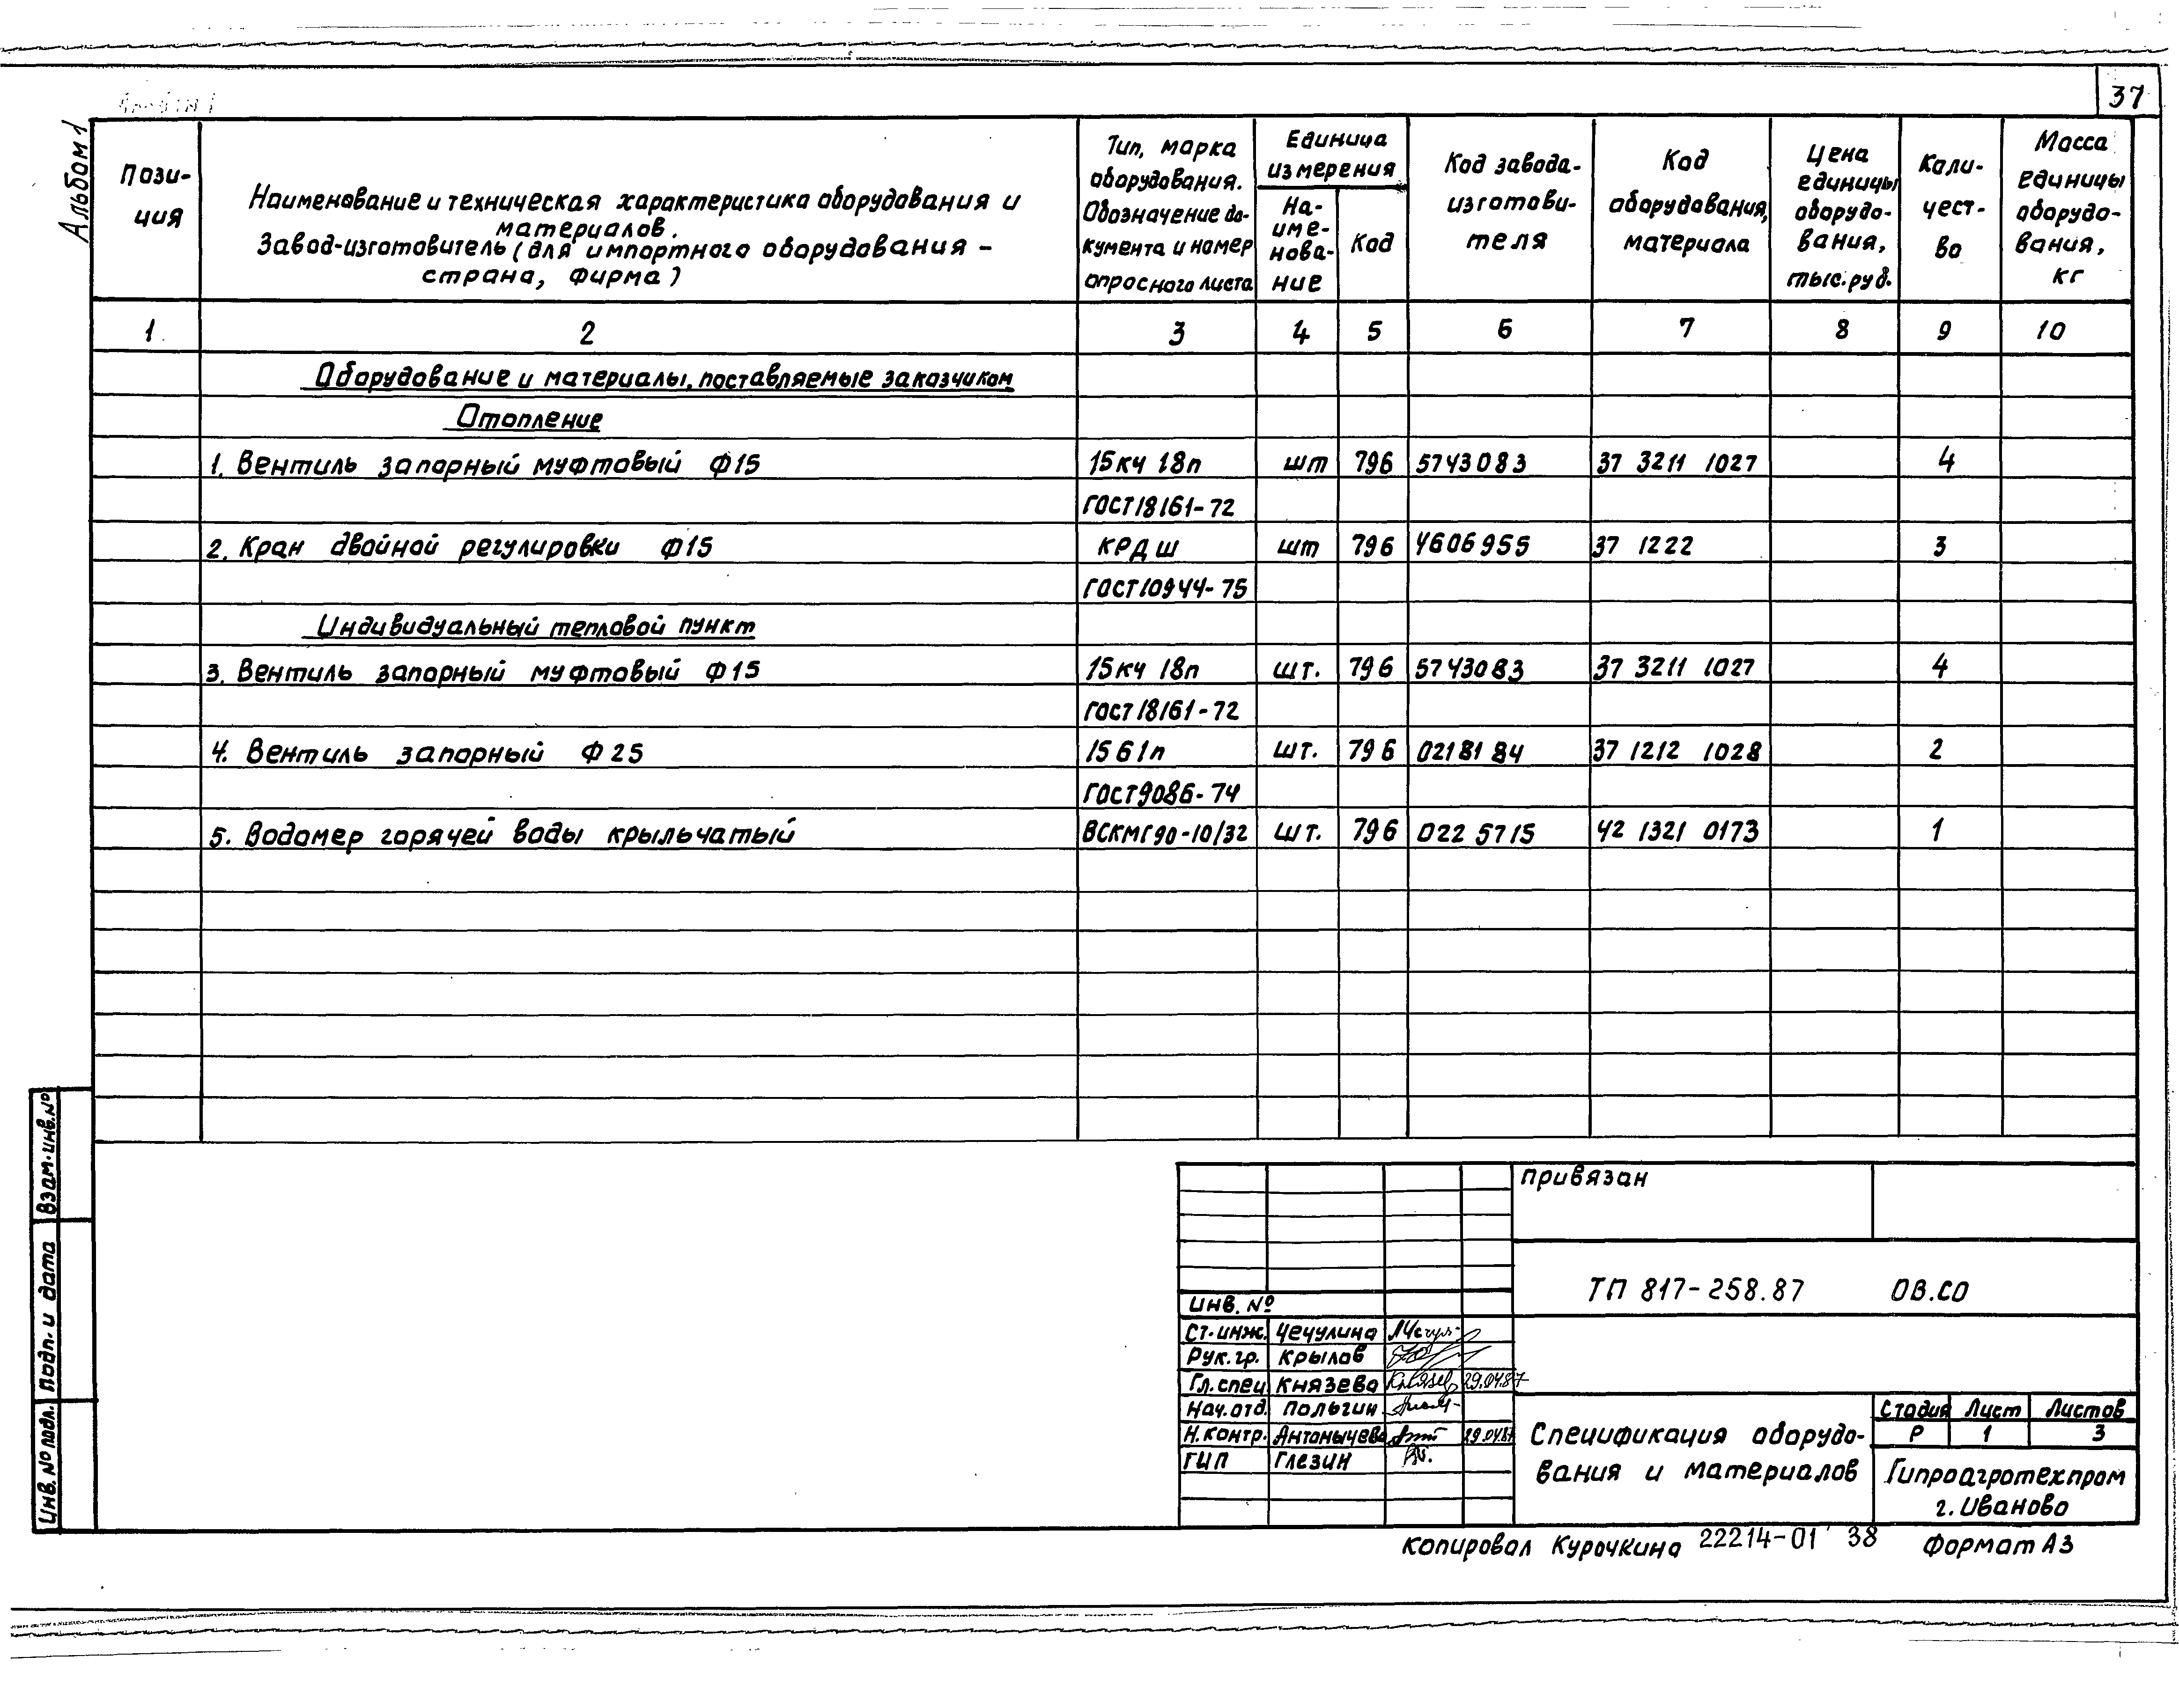 37
Альбом 1
Пози-
ция
Наименование и техническая характеристика оборудования и
материалов.
Завод-изготовитель (для импортного оборудования –
страна, фирма)
Тип, марка
оборудования.
Обозначение до-
кумента и номер
опросного листа
Единица
измерения
На-
име-
нова-
ние
Код
Код завода-
изготови-
теля
Код
оборудования,
материала
Цена
единицы
оборудо-
вания,
тыс. руб.
Коли-
чест-
во
Масса
единицы
оборудо-
вания,
кг
1 2 3 4 5 6 7 8 9 10
Оборудование и материалы, поставляемые заказчиком
Отопление
1. Вентиль запорный муфтовый Ф15 15кч 18п шт 796 5743083 37 3211 1027 4
ГОСТ 18161-72
2. Кран двойной регулировки Ф15 КРДШ шт 796 4606955 37 1222 3
ГОСТ 10944-75
Индивидуальный тепловой пункт
3. Вентиль запорный муфтовый Ф15 15кч 18п шт. 796 5743083 37 3211 1027 4
ГОСТ 18161-72
4. Вентиль запорный Ф25 15б1п шт. 796 0218184 37 1212 1028 2
ГОСТ 9086-74
5. Водомер горячей воды крыльчатый ВСКМГ90-10/32 шт. 796 022 5715 42 1321 0173 1
Взам. инв. №
Подп. и дата
Инв. № подл.
Привязан
Инв. №
ТП 817-258.87 ОВ.СО
Ст. инж. Чечулина
Рук. гр. Крылов
Гл. спец Князева 29.04.87
Нач. отд. Полыгин
Н. контр. Антонычева 29.04.87
ГИП Глезин
Спецификация оборудо-
вания и материалов
Стадия Лист Листов
Р 1 3
Гипроагротехпром
г. Иваново
Копировал Курочкина 22214-01 38 Формат А3